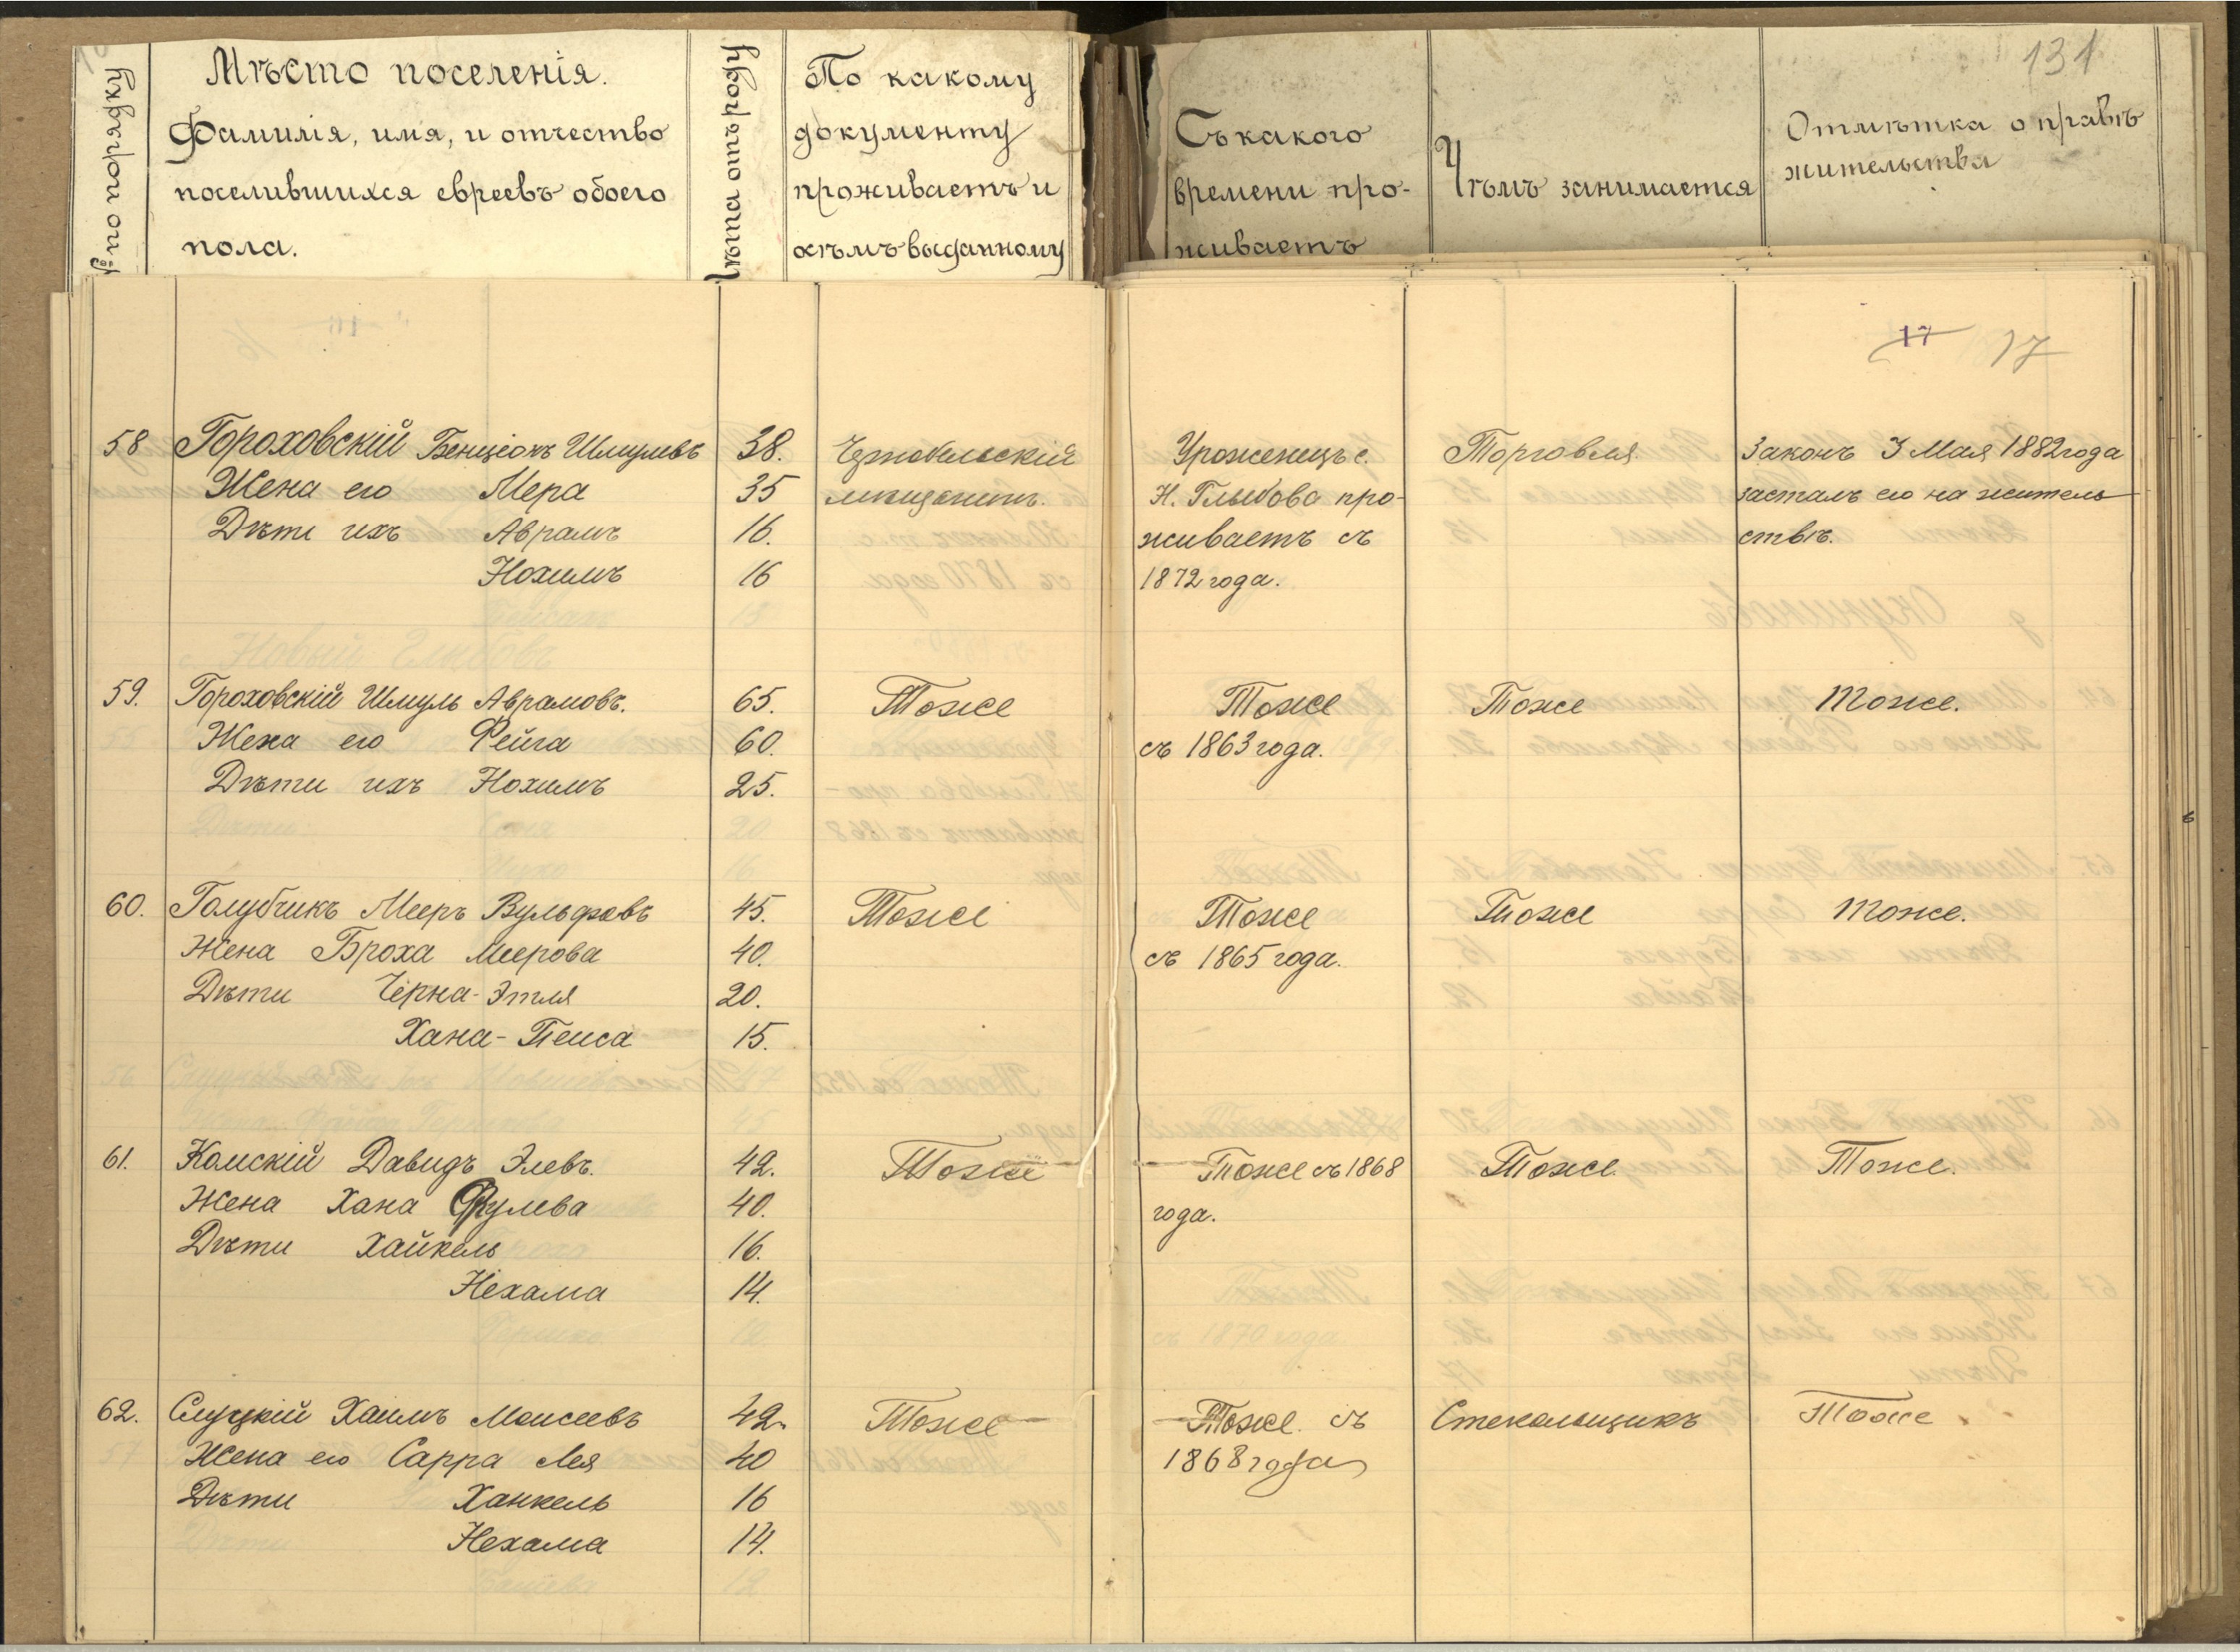 131
№ по порядку
Мѣсто поселенія.
Фамилія, имя, и отчество
поселившихся евреевъ обоего
пола.
Лѣта отъ роду
По какому
документу
проживаетъ и
кѣмъ выданному
Съ какого
времени про-
живаетъ
Чѣмъ занимается
Отмѣтка о правѣ
жительства
17 17
58 Гороховскій Бенціонъ Шмулевъ 38. Чернобыльскій Уроженецъ с. Торговля Законъ 3 Мая 1882 года
Жена его Мера 35 мѣщанинъ. Н. Глыбова про- засталъ его на житель
Дѣти ихъ Аврамъ 16. живаетъ съ ствѣ.
Нохимъ 16 1872 года.
59. Гороховскій Шмуль Аврамовъ. 65. Тоже Тоже Тоже Тоже.
Жена его Фейга 60. съ 1863 года.
Дѣти ихъ Нохимъ 25.
60. Голубчикъ Мееръ Вульфовъ 45. Тоже Тоже Тоже Тоже.
Жена Броха Меерова 40. съ 1865 года.
Дѣти Черна-Этля 20.
Хана-Песса 15.
61. Комскій Давидъ Элевъ. 42. Тоже Тоже съ 1868 Тоже. Тоже.
Жена Хана 40. года.
Дѣти Хайкель 16.
Нехама 14.
62. Слуцкій Хаимъ Моисеевъ 42. Тоже Тоже. съ Стекольщикъ Тоже
Жена его Сарра Лея 40 1868 года
Дѣти Ханкель 16
Нехама 14.